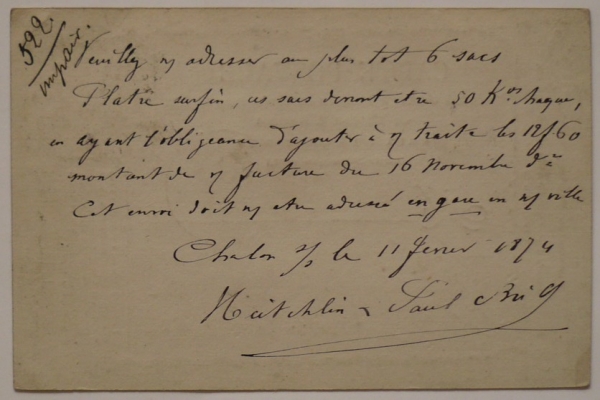 522.
impair.
Veuillez ns adresser au plus tot 6 sacs
Platre surfin, ces sacs devront etre 50 Kos chaque,
en ayant l'obligeance d'ajouter à v/ traite les 12f.60
montant de v/ facture du 16 Novembre de
Cet envoi doit ns etre adressé en gare en n/ ville
Chalon s/s le 11 fevrier 1874
& Paul